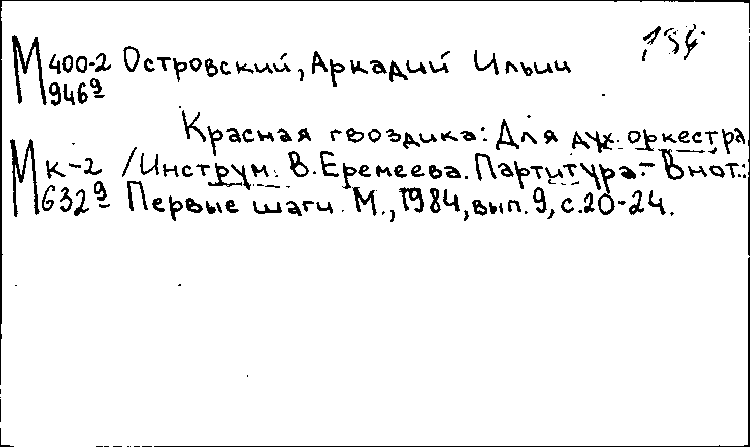 М 400-2 Островский, Аркадий Ильич
946э
Красная гвоздика: Для дух. оркестра
М к-2 /Инструм. В. Еремеева. Партитура.- В нот.:
632э Первые шаги. М., 1984, вып. 9, с. 20-24.